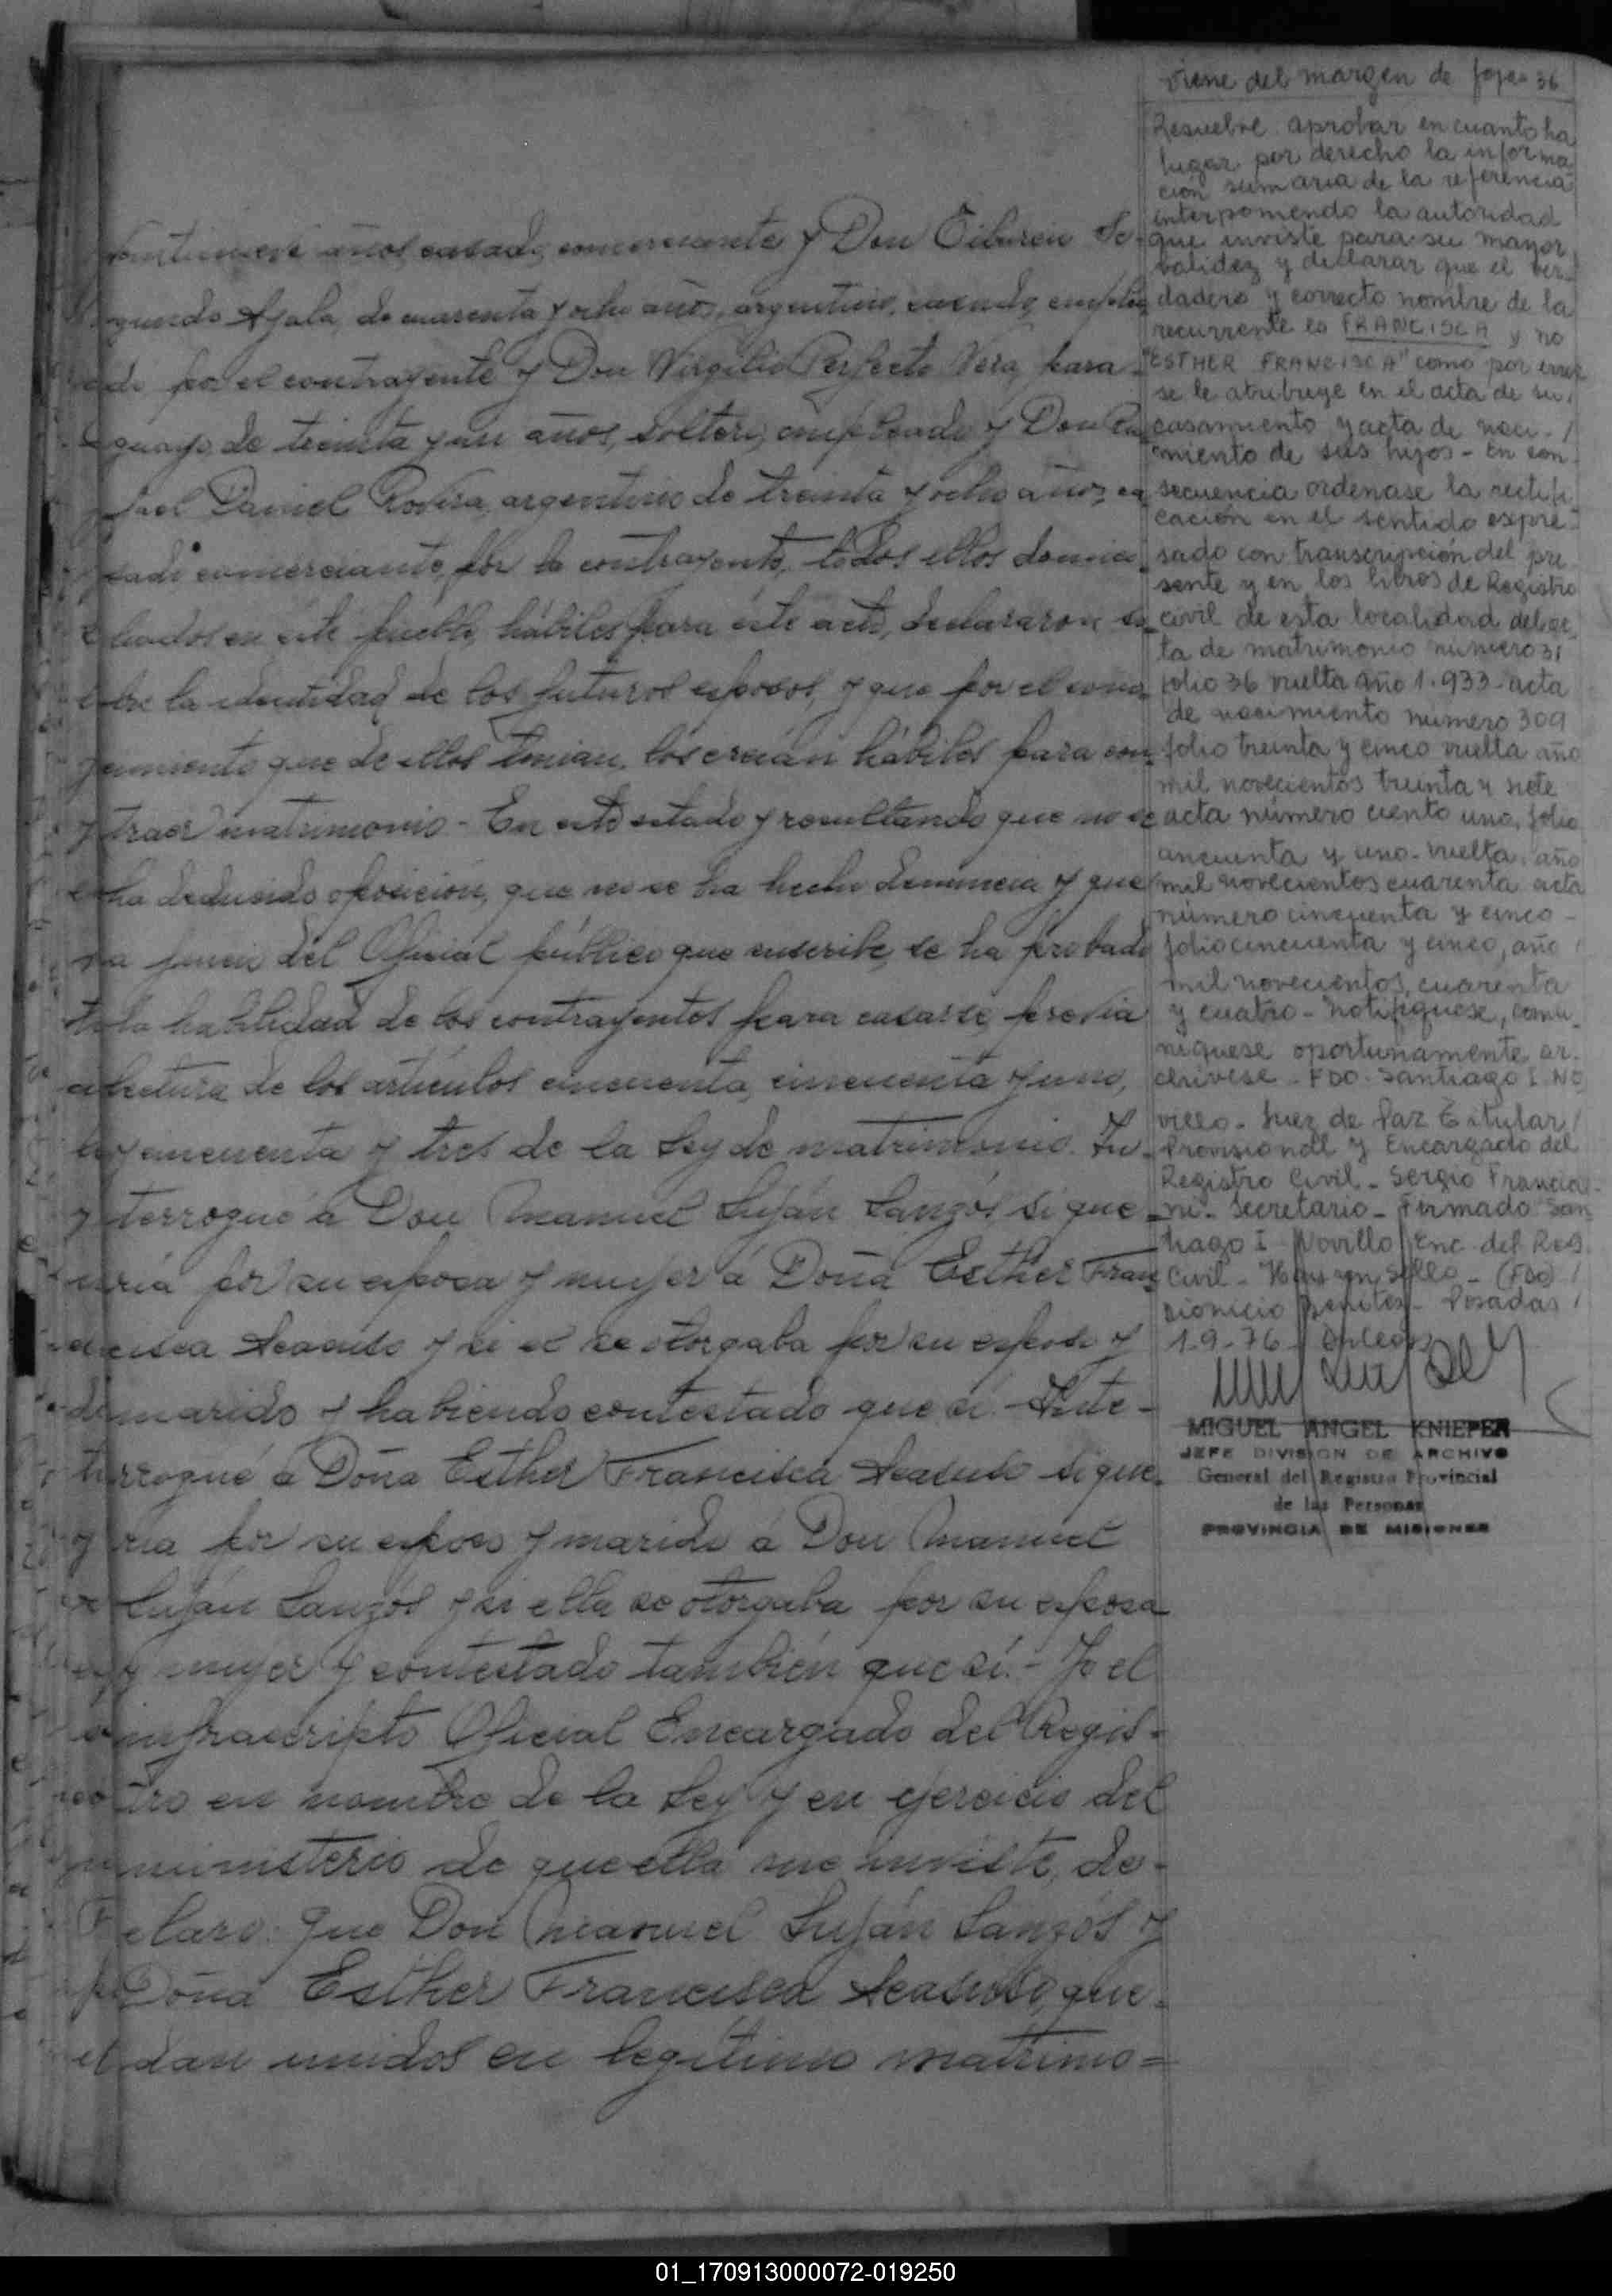 años, casado, comerciante y Don Tiburcio Se-
gundo Ayala, de cuarenta y ocho años, argentino, casado, emplea
do por el contrayente y Don Virgilio Perfecto Vera, para-
guayo, de treinta y un años, soltero, empleado y Don
Daniel Rovira, argentino de treinta y ocho años, ca
sado comerciante, por la contrayente, todos ellos domici
liados en este pueblo, hábiles para este acto, declararon so
bre la identidad de los futuros esposos, y que por el cono
cimiento que de ellos tenian, los creían hábiles para con
traer matrimonio - En este estado y resultando que no se
ha deducido oposición, que no se ha hecho denuncia y que
a juicio del Oficial público que suscribe, se ha probado
la habilidad de los contrayentes para casarse, previa
lectura de los artículos cincuenta, cincuenta y uno,
y cincuenta y tres de la Ley de matrimonio. In-
terrogué á Don Manuel Luján Lanzós si que-
ría por su esposa y mujer á Doña Esther Fran
cisca Acasuso y si el se otorgaba por su esposo y
marido y habiendo contestado que sí. Inte-
rrogué á Doña Esther Francisca Acasuso si que-
ría por su esposo y marido á Don Manuel
Luján Lanzós y si ella se otorgaba por su esposa
y mujer y contestado también que sí. - Yo el
infrascripto Oficial Encargado del Regis-
tro en nombre de la Ley y en ejercicio del
ministerio de que ella me inviste, de-
claro: Que Don Manuel Luján Lanzós y
Doña Esther Francisca Acasuso, que-
dan unidos en legítimo matrimo=
viene del margen de fojas 36
Resuelve: aprobar en cuanto ha
lugar por derecho la informa
ción sumaria de la referencia
interponiendo la autoridad
que inviste para su mayor
validez y declarar que el ver-
dadero y correcto nombre de la
recurrente es FRANCISCA y no
"ESTHER FRANCISCA" como por error
se le atribuye en el acta de su
casamiento y acta de naci-/
miento de sus hijos - En con-
secuencia ordenase la rectifi
cación en el sentido expre-
sado con transcripción del pre
sente y en los libros de Registro
civil de esta localidad del ac
ta de matrimonio número 31
folio 36 vuelta año 1.933 - acta
de nacimiento número 309
folio treinta y cinco vuelta año
mil novecientos treinta y siete
acta número ciento uno, folio
cincuenta y uno - vuelta, año
mil novecientos cuarenta acta
número cincuenta y cinco -
folio cincuenta y cinco, año
mil novecientos, cuarenta
y cuatro - Notifíquese, comu-
níquese oportunamente ar-
chívese - FDO. Santiago I. No
villo - Juez de Paz Titular
Provisional y Encargado del
Registro Civil - Sergio Francia-
ni - secretario - Firmado San
tiago I Novillo Enc. del Reg.
Civil - Hay un Sello - (FDO)
Dionicio Benitez - Posadas
1-9-76
MIGUEL ANGEL KNIEPER
JEFE DIVISION DE ARCHIVO
General del Registro Provincial
de las Personas
PROVINCIA DE MISIONES
01_170913000072-019250